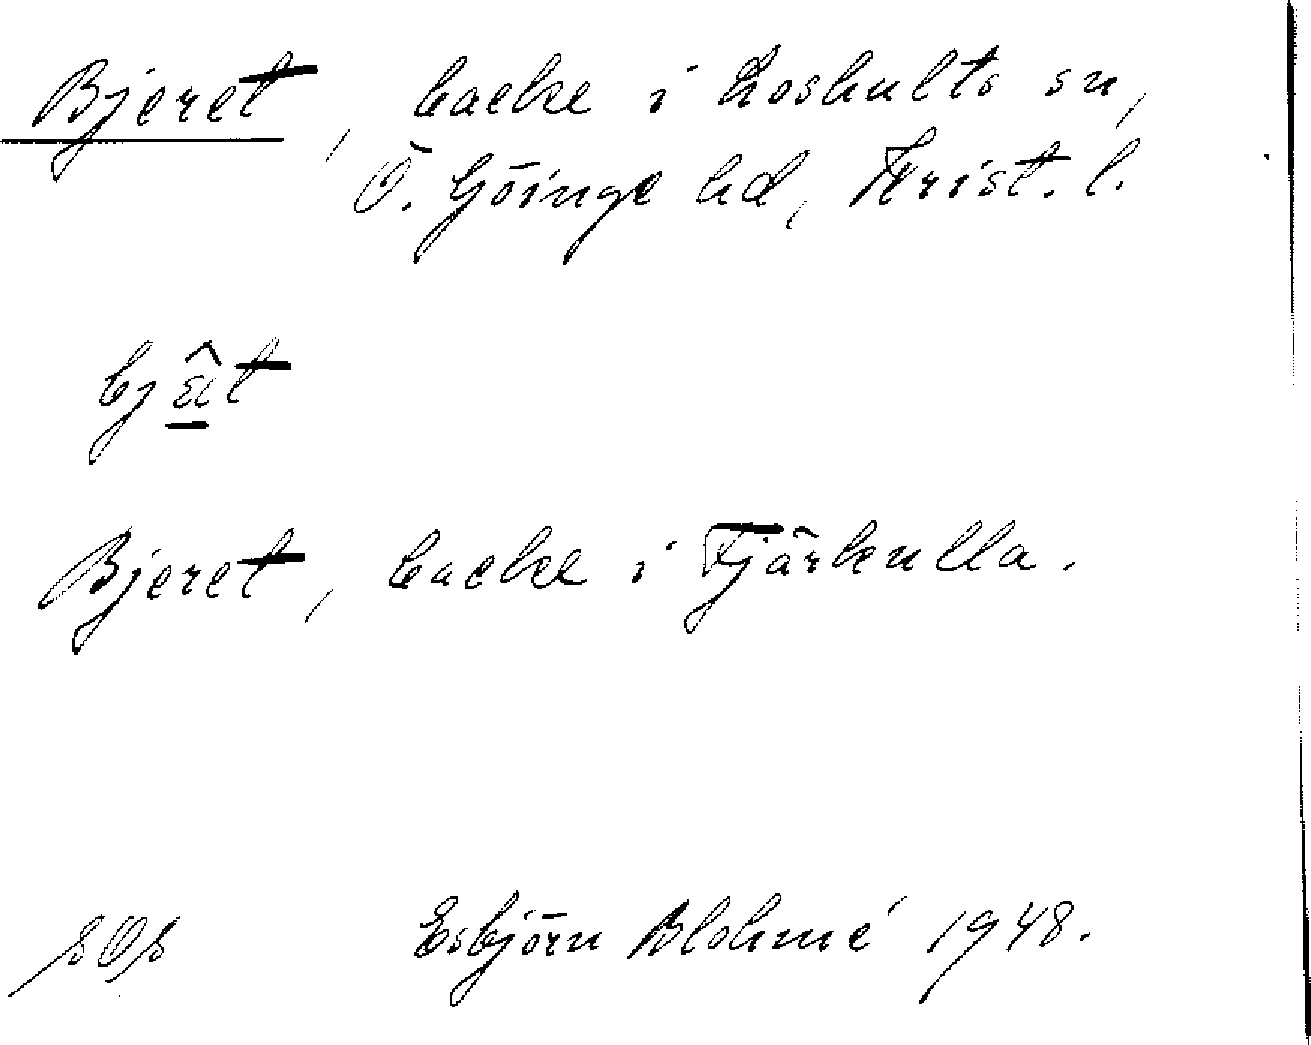 Bjeret, backe i Loshults sn,
Ö. Göinge hd, Krist. l.
Bjeret, backe i Tjärkulla.
Esbjörn Blohmé 1948.